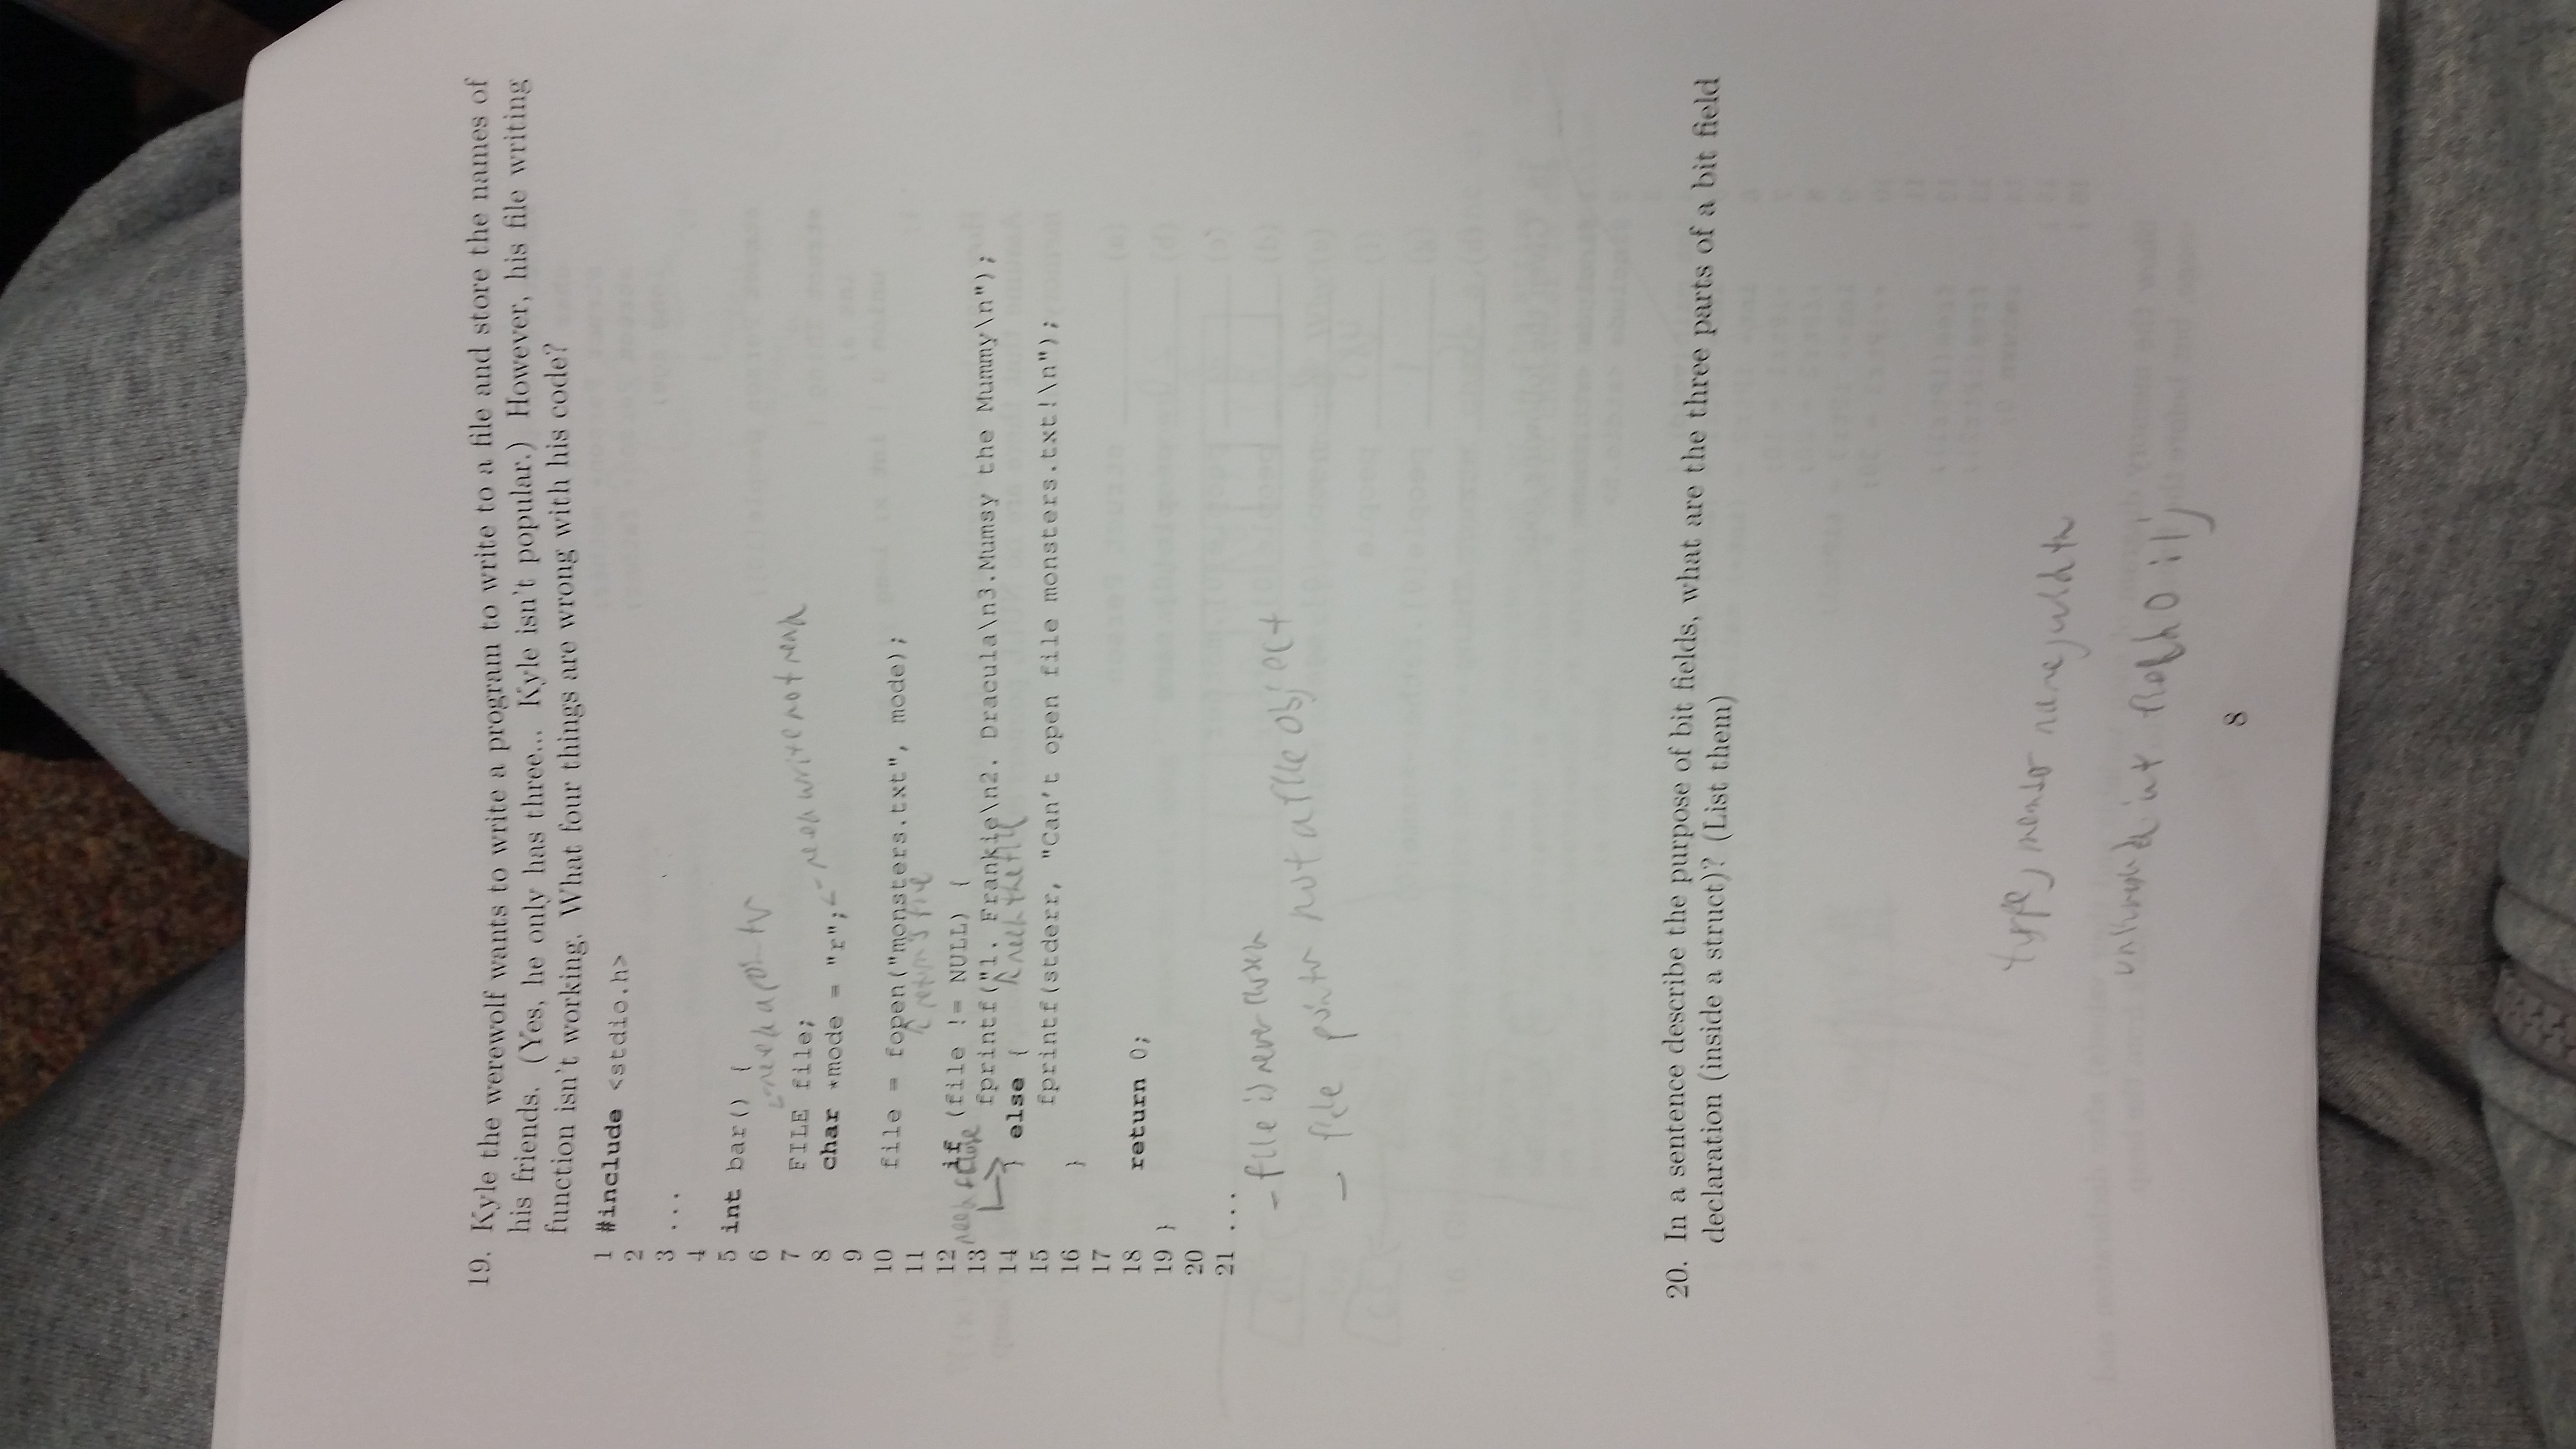 19. Kyle the werewolf wants to write a program to write to a file and store the names of
his friends. (Yes, he only has three... Kyle isn't popular.) However, his file writing
function isn't working. What four things are wrong with his code?
1 #include <stdio.h>
2
3 ...
4
5 int bar() {
6
<- need a pointer
7 FILE file;
8 char *mode = "r"; <- need write not read
9
10 file = fopen("monsters.txt", mode);
11 returns file
12 if (file != NULL) {
need fclose
13 fprintf("1. Frankie\n2. Dracula\n3.Mumsy the Mummy\n");
14 } else { need the file
15 fprintf(stderr, "Can't open file monsters.txt!\n");
16 }
17
18 return 0;
19 }
20
21 ...
- file is never closed
- file pointer not a file object
20. In a sentence describe the purpose of bit fields, what are the three parts of a bit field
declaration (inside a struct)? (List them)
type, member name, width
int
8